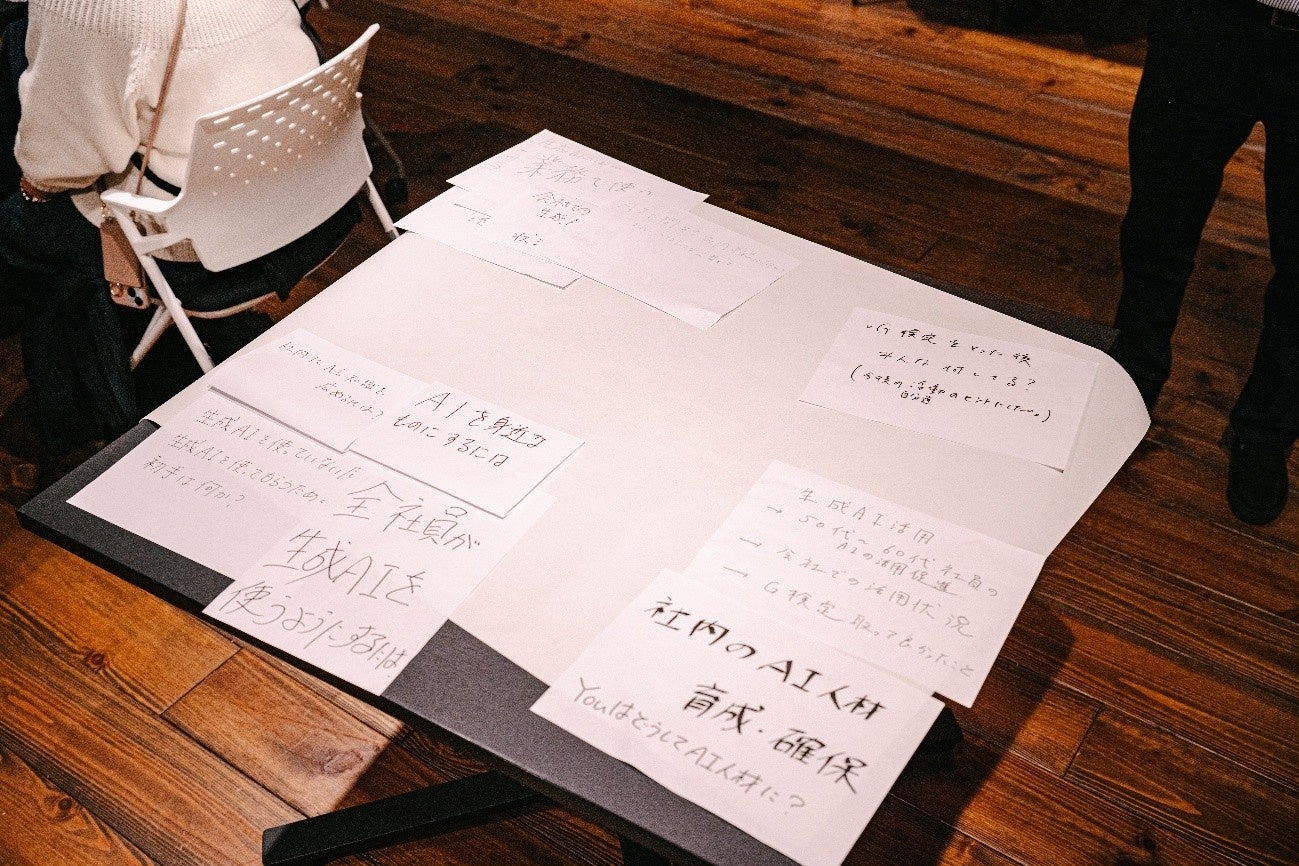 業務で使い
会社での
生成AI
社内にAI知識を
広めるには?
AIを身近な
ものにするには
生成AIを使っていない層
生成AIを使ってもらうための
初手は何か?
全社員が
生成AIを
使うようにするには
G検定をとった後
みんな何してる?
(今後の活動のヒントにしたい。)
自分達
生成AI活用
→50代〜60代社員の
AIの活用促進
→会社での活用状況
→G検定取ってよかったこと
社内のAI人材
育成・確保
YouはどうしてAI人材に?